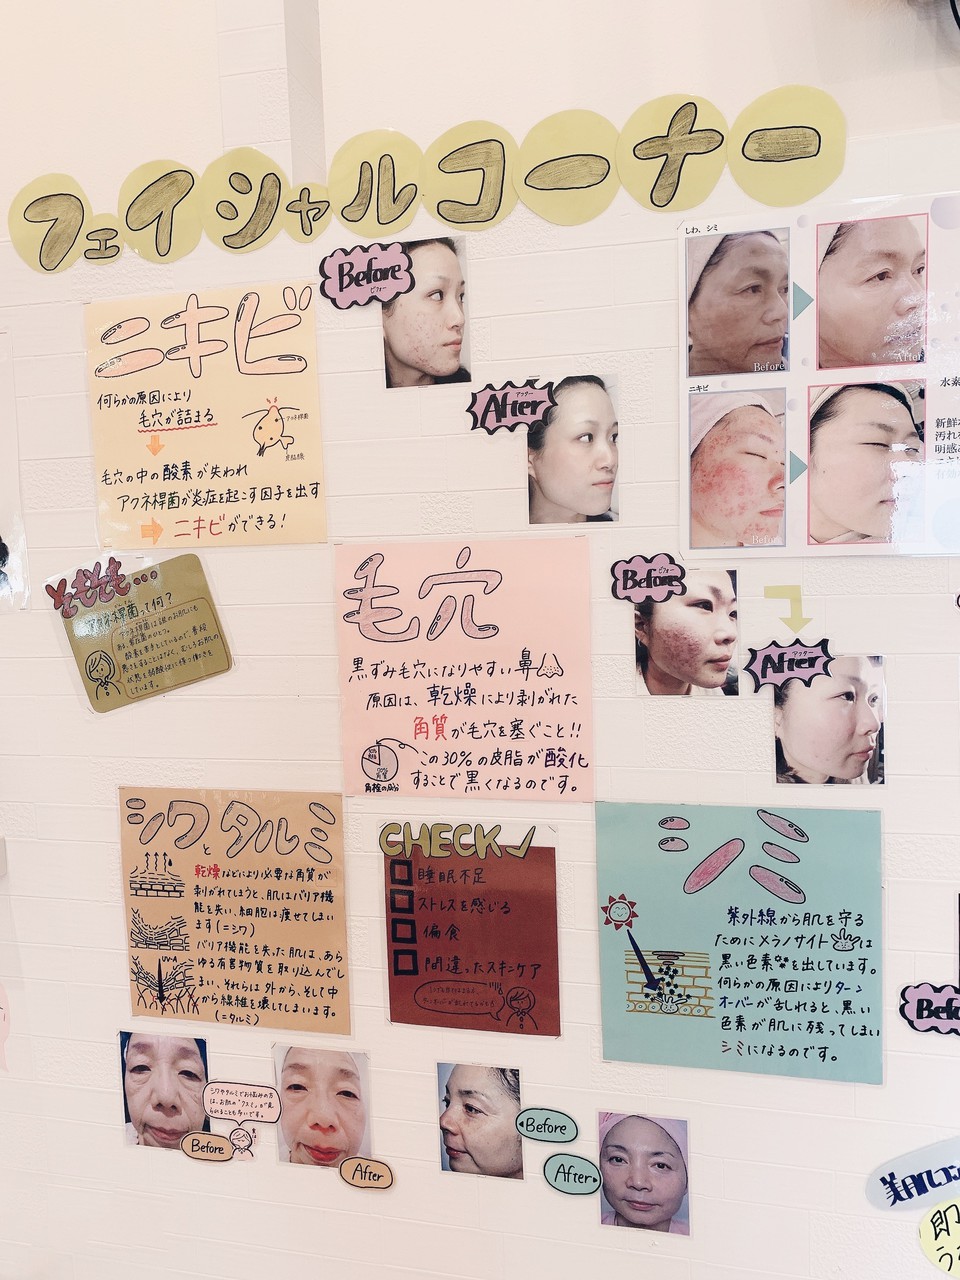 フェイシャルコーナー
Before
ビフォー
After
アフター
しわ、シミ
Before
After
ニキビ
Before
水素
新鮮
汚れを
明感
ニキビ
何らかの原因により
毛穴が詰まる
アクネ桿菌
皮脂腺
毛穴の中の酸素が失われ
アクネ桿菌が炎症を起こす因子を出す
ニキビができる!
そもそも...
アクネ桿菌って何?
毛穴
黒ずみ毛穴になりやすい鼻
原因は、乾燥により剥がれた
角質が毛穴を塞ぐこと!!
この30%の皮脂が酸化
することで黒くなるのです。
角栓の成分
Before
ビフォー
After
アフター
シワとタルミ
乾燥などにより必要な角質が
剥がれてしまうと、肌はバリア機
能を失い、細胞は痩せてしまい
ます(=シワ)
バリア機能を失った肌は、あら
ゆる有害物質を取り込んでし
まい、それらは外から、そして中
から線維を壊してしまいます。
(=タルミ)
UV-A
CHECK
睡眠不足
ストレスを感じる
偏食
間違ったスキンケア
シミ
紫外線から肌を守る
ためにメラノサイトは
黒い色素を出しています。
何らかの原因によりターン
オーバーが乱れると、黒い
色素が肌に残ってしまい
シミになるのです。
シワやタルミでお悩みの方
は、お肌の"クスミ"が見
られることも多いです。
Before
After
Before
After
美肌コン
即